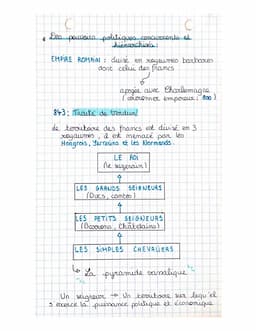 Des pouvoirs politiques concurrents et
hiérarchisés :
EMPIRE ROMAIN : divisé en royaumes barbares
dont celui des francs
apogée avec Charlemagne
(couronner empereur : 800)
843 : Traité de Verdun
le territoire des francs est divisé en 3
royaumes, il est menacé par les
Hongrois, Sarrasins et les Normands.
LE ROI
(le suzerain)
LES GRANDS SEIGNEURS
(Ducs, comtes)
LES PETITS SEIGNEURS
(Barons, Châtelains)
LES SIMPLES CHEVALIERS
La pyramide vassalique
Un seigneur → Un territoire sur lequel
s'exerce la puissance politique et économique